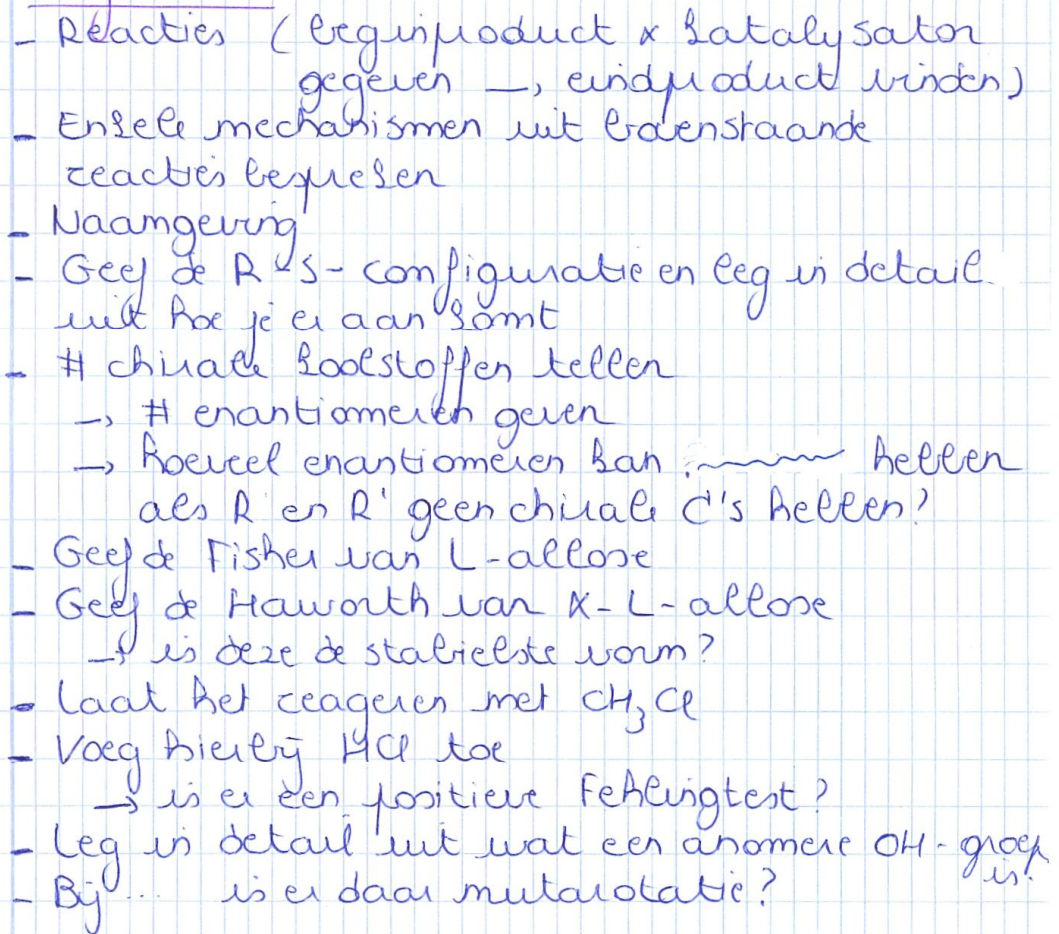 - Reacties (beginproduct & katalysator
gegeven → eindproduct vinden)
- Enkele mechanismen uit bovenstaande
reacties bespreken
- Naamgeving
- Geef de R-S-configuratie en leg in detail
uit hoe je er aan komt
- # chirale koolstoffen tellen
→ # enantiomeren geven
→ hoeveel enantiomeren kan hebben
als R en R' geen chirale C's hebben?
- Geef de Fisher van L-allose
- Geef de Haworth van α-L-allose
→ is deze de stabielste vorm?
- Laat het reageren met CH₃Cl
- Voeg hierbij HCl toe
→ is er een positieve Fehlingtest?
- Leg in detail uit wat een anomere OH-groep
is.
- Bij ... is er daar mutarotatie?